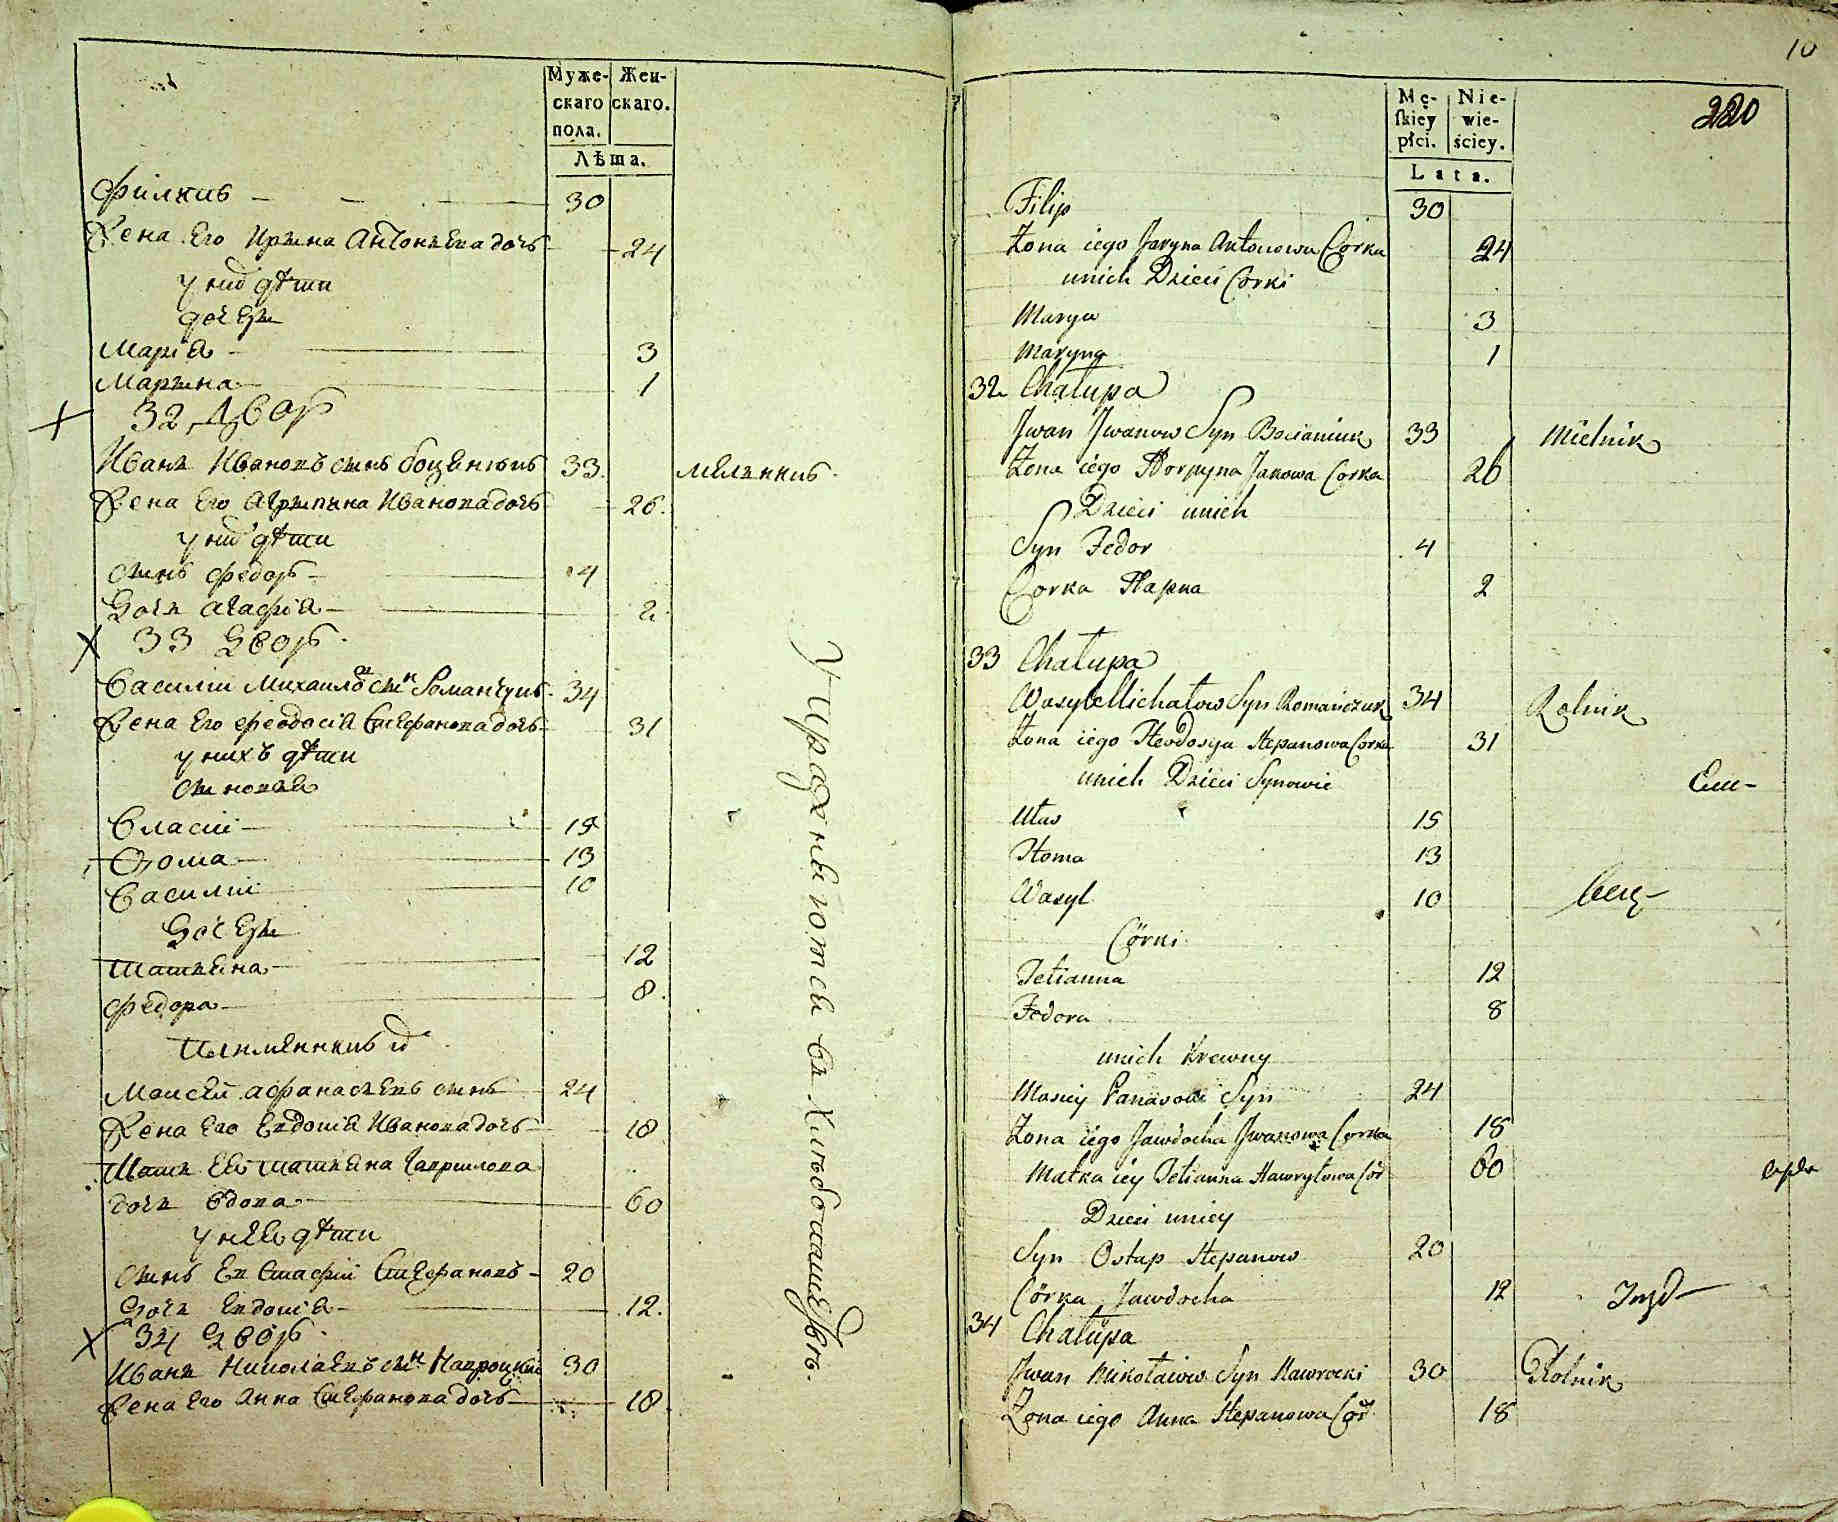 Муже-
скаго
пола.
Жен-
скаго.
Лѣта.
Филипъ 30
Жена Его Ирина Антоньева дочь 24
у них дѣти
дочери
Марія 3
Марина 1
32 Дворъ
Иванъ Ивановъ сынъ Боценюкъ 33. мелникъ.
Жена Его Агрипина Иванова дочь 26.
у них дѣти
сынъ Федоръ 4
Дочь Агафія 2.
33 Дворъ.
Василій Михайлов сын Романчукъ 34
Жена Его Феодосія Стефанова дочь 31
у нихъ дѣти
сыновья
Власій 15
Фома 13
Василій 10
Дочери
Татьяна 12
Федора 8.
Племянникъ их
Моисей Афанасьевъ сынъ 24
Жена Его Евдокія Иванова дочь 18
Мать Ея Татьяна Гаврилова
дочь вдова 60
у нея дѣти
сынъ Евстафій Стефановъ 20
Дочь Евдокія 12.
34 дворъ.
Иванъ Николаевъ сын Навроцкій 30
Жена Его Анна Стефанова дочь 18.
Упражняются въ Хлѣбопашествѣ.
10
220
Mę-
skiey
płci.
Nie-
wie-
ściey.
Lata.
Filip 30
Żona iego Jaryna Antonowa Corka 24
unich Dzieci Corki
Marya 3
Maryna 1
32 Chałupa
Jwan Jwanow Syn Bocianiuk 33 Mielnik
Żona iego Horpyna Janowa Corka 26
Dzieci unich
Syn Fedor 4
Corka Hapna 2
33 Chałupa
Wasyl Michałow Syn Romańczuk 34 Rolnik
Żona iego Heodosya Stepanowa Corka 31
unich Dzieci Synowie
Ułas 15
Homa 13
Wasyl 10
Córki
Tetianna 12
Fedora 8
unich Krewny
Mosiey Panasow Syn 24
Żona iego Jawdocha Jwanowa Corka 18
Matka iey Tetianna Hawryłowa Cór 60
Dzieci uniey
Syn Ostap Stepanow 20
Córka Jawdocha 12
34 Chałupa
Jwan Mikołaiow Syn Nawrocki 30 Rolnik
Żona iego Anna Stepanowa Cór 18